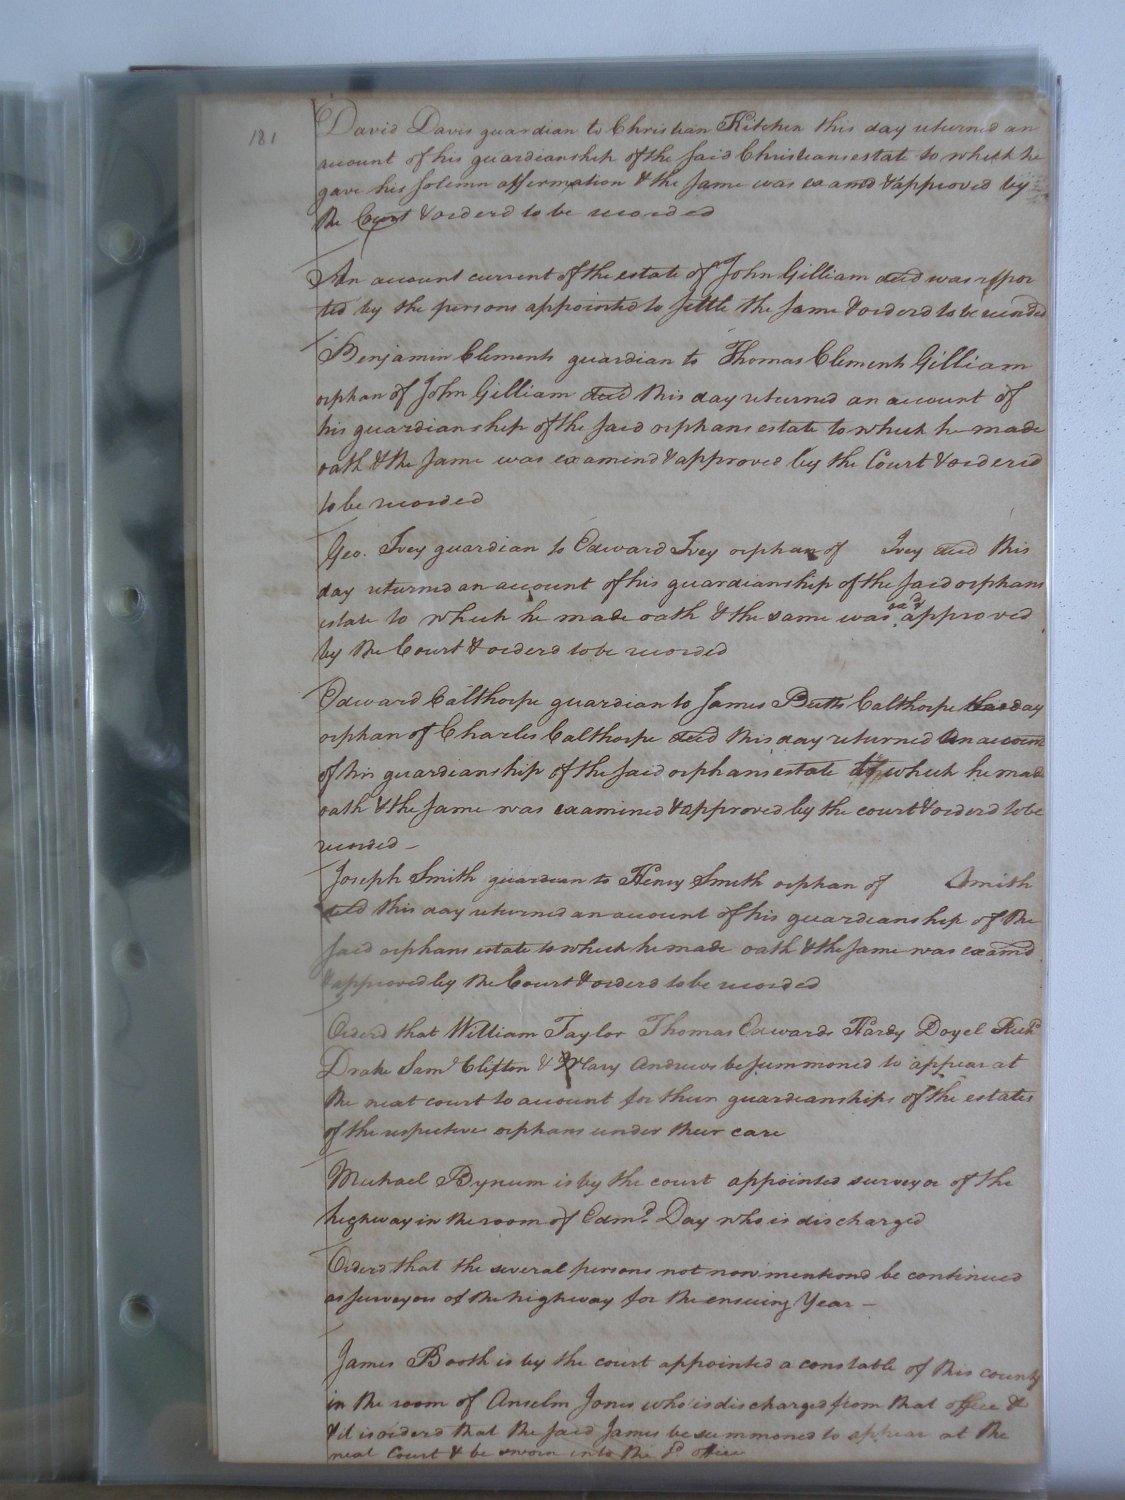 181
David Davis guardian to Christian Kitchen this day returned an
account of his guardianship of the said Christians estate to which he
gave his solemn affermation & the same was examd & approved by
the Court & orderd to be recorded
An account current of the estate of John Gilliam decd was repor
ted by the persons appointed to settle the same & orderd to be recorded
Benjamin Clements guardian to Thomas Clements Gilliam
orphan of John Gilliam decd this day returned an account of
his guardianship of the said orphans estate to which he made
oath & the same was examind & approved by the Court & ordered
to be recorded
Geo. Ivey guardian to Edward Ivey orphan of Ivey decd this
day returned an account of his guardianship of the said orphans
estate to which he made oath & the same was exd & approved
by the Court & orderd to be recorded
Edward Calthorpe guardian to James Butts Calthorpe day
orphan of Charles Calthorpe decd this day returned an account
of his guardianship of the said orphans estate to which he made
oath & the same was examined & approved by the court & orderd to be
recorded –
Joseph Smith guardian to Henry Smith orphan of Smith
decd this day returned an account of his guardianship of the
said orphans estate to which he made oath & the same was examd
& approved by the Court & orderd to be recorded
Orderd that William Taylor Thomas Edwards Hardy Doyel Richd
Drake Saml Clifton & Mary Andrews be summoned to appear at
the next court to account for their guardianships of the estates
of the respective orphans under their care
Michael Bynum is by the court appointed surveyor of the
highway in the room of Edmd Day who is discharged
Orderd that the several persons not now mentiond be continued
as surveyors of the highway for the ensuing Year –
James Booth is by the court appointed a constable of this county
in the room of Anselm Jones who is discharged from that office &
& it is orderd that the said James be summoned to appear at the
next Court & be sworn into the sd office